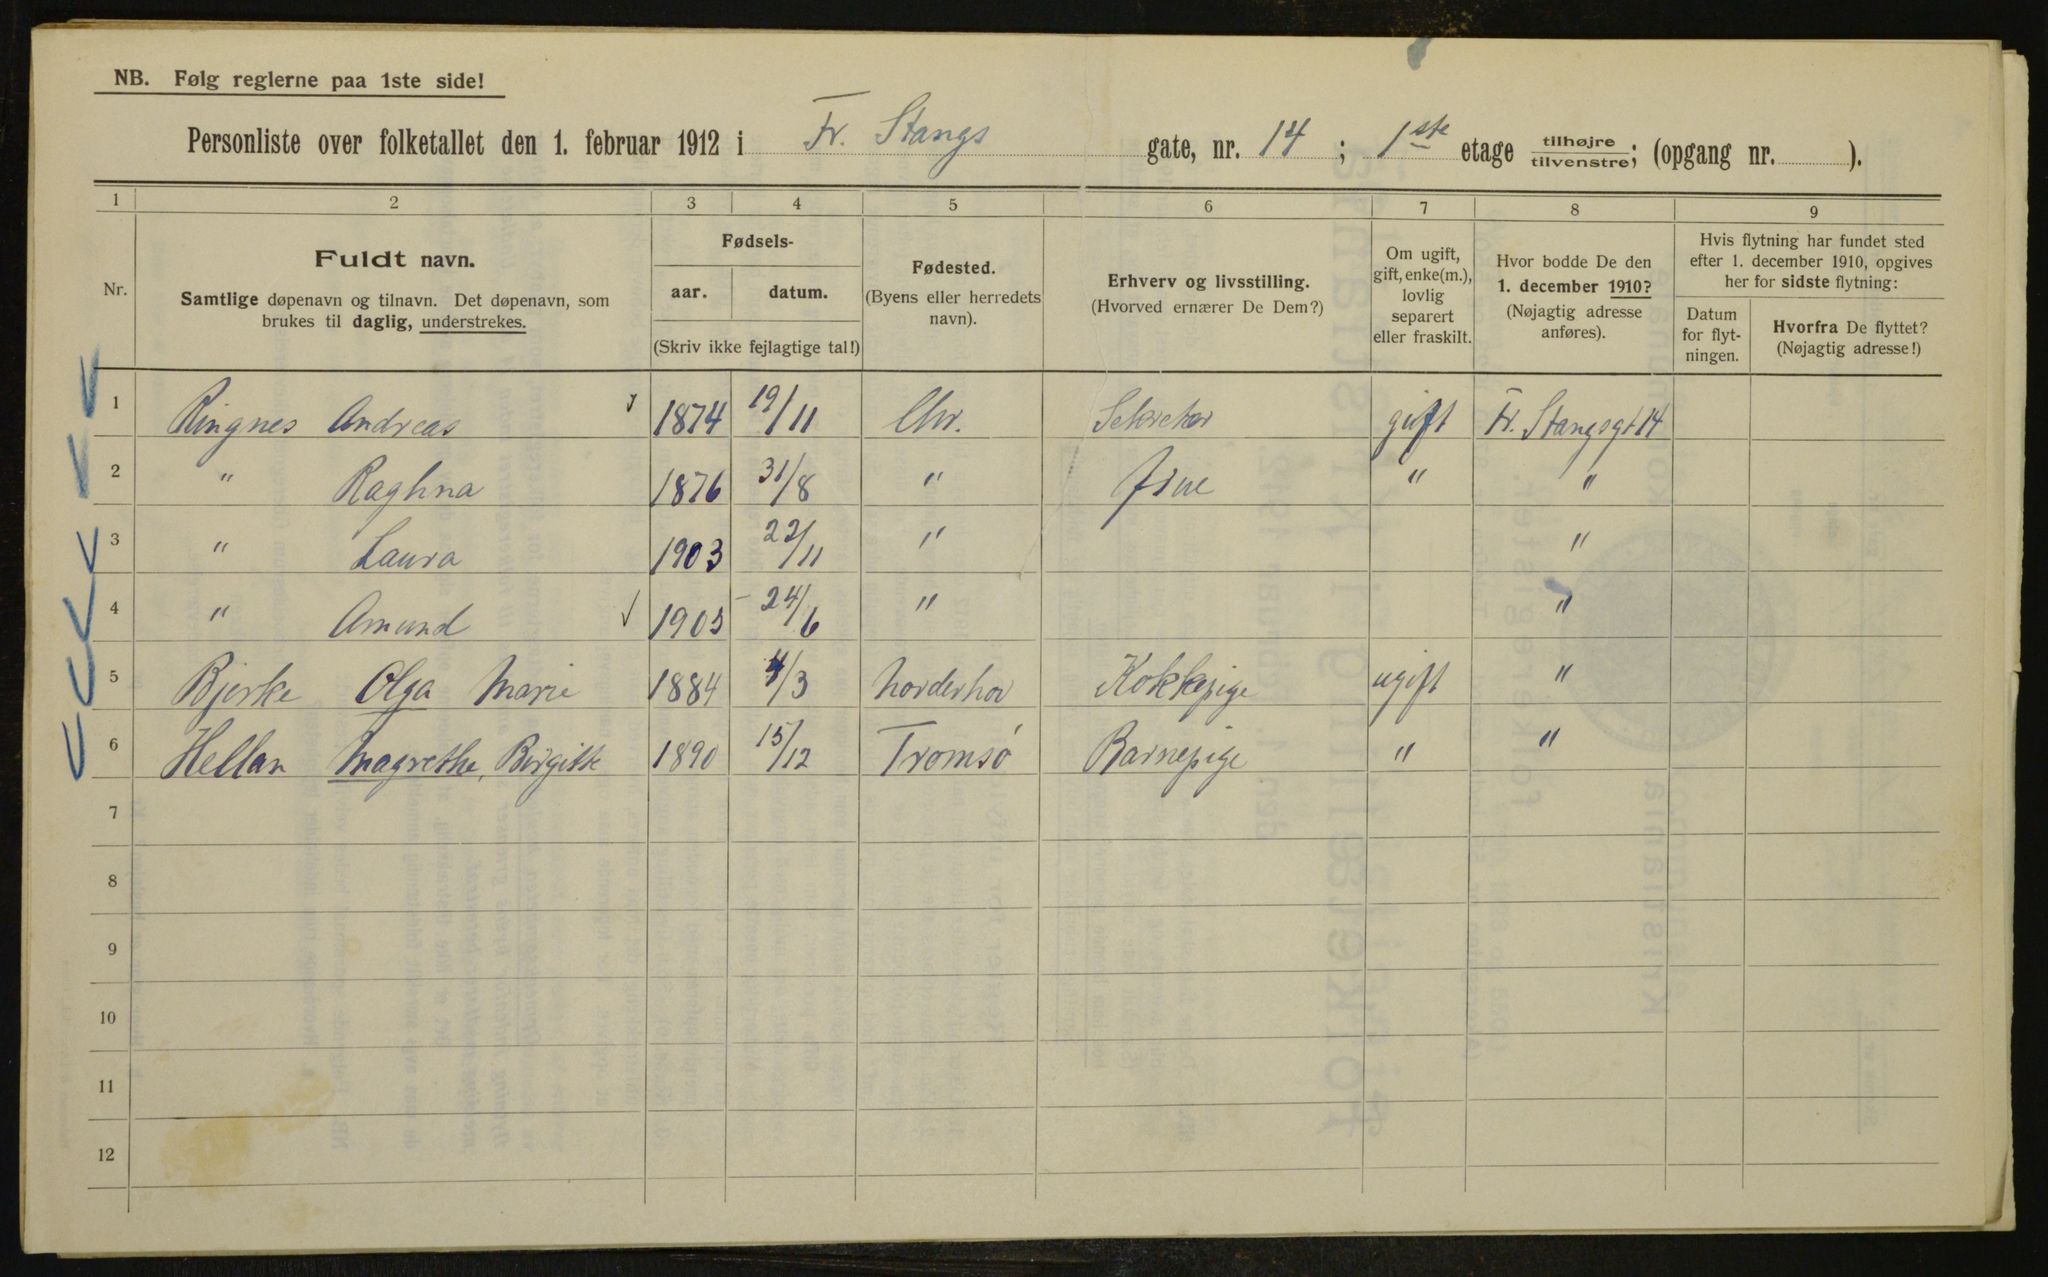 NB. Følg reglerne paa 1ste side!
Personliste over folketallet den 1. februar 1912 i Fr. Stangs gate, nr. 14; 1ste etage tilhøjre/tilvenstre; (opgang nr. ).
1 2 3 4 5 6 7 8 9
Nr.
Fuldt navn.
Samtlige døpenavn og tilnavn. Det døpenavn, som
brukes til daglig, understrekes.
Fødsels-
aar. datum.
(Skriv ikke fejlagtige tal!)
Fødested.
(Byens eller herredets
navn).
Erhverv og livsstilling.
(Hvorved ernærer De Dem?)
Om ugift,
gift, enke(m.),
lovlig
separert
eller fraskilt.
Hvor bodde De den
1. december 1910?
(Nøjagtig adresse
anføres).
Hvis flytning har fundet sted
efter 1. december 1910, opgives
her for sidste flytning:
Datum
for flyt-
ningen.
Hvorfra De flyttet?
(Nøjagtig adresse!)
1 Ringnes Andreas 1874 19/11 Chr. Sekretær gift Fr. Stangsgt 14
2 " Raghna 1876 31/8 " Frue " "
3 " Laura 1903 22/11 " "
4 " Amund 1905 24/6 " "
5 Bjerke Olga Marie 1884 4/3 Norderhov Kokkepige ugift "
6 Hellan Magrethe, Birgitte 1890 15/12 Tromsø Barnepige " "
7
8
9
10
11
12